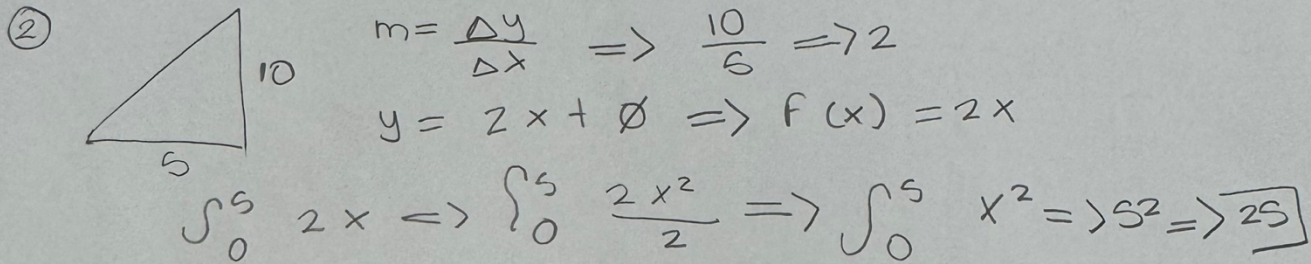 ②
10
5
m = Δy/Δx => 10/5 => 2
y = 2x + Ø => f(x) = 2x
∫₀⁵ 2x => ∫₀⁵ 2x²/2 => ∫₀⁵ x² => 5² => 25